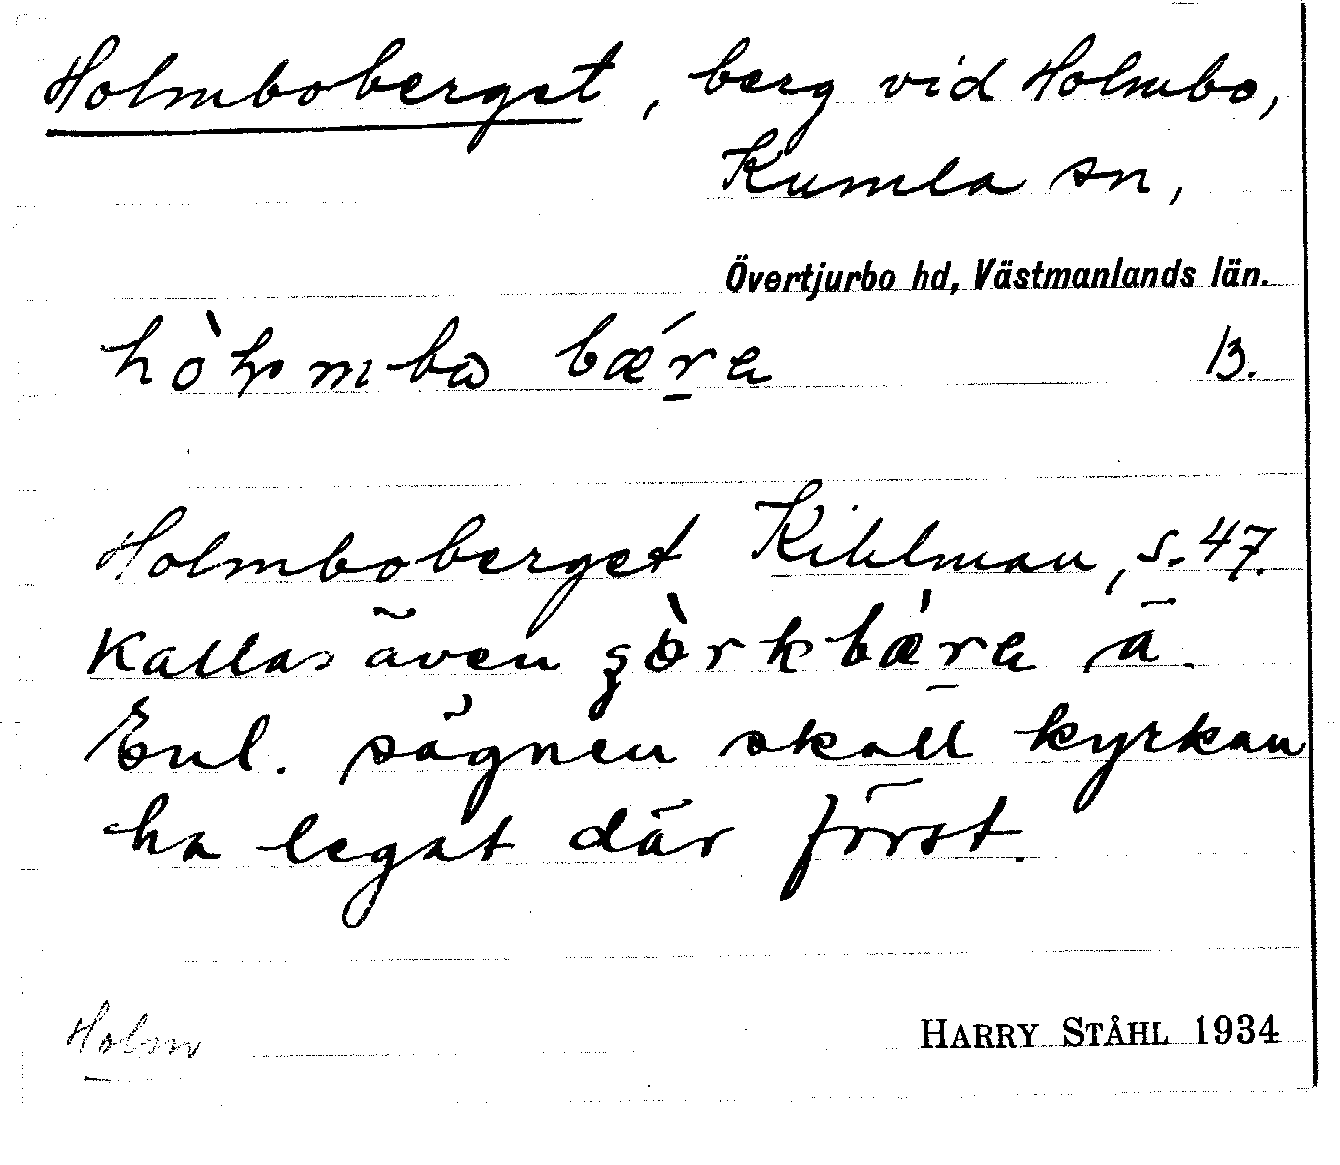 Holmboberget, berg vid Holmbo,
Kumla sn,
Övertjurbo hd, Västmanlands län.
B.
Holmboberget Kihlman, s. 47.
Kallas även
Enl. sägnen skall kyrkan
ha legat där först.
Holm
HARRY STÅHL 1934